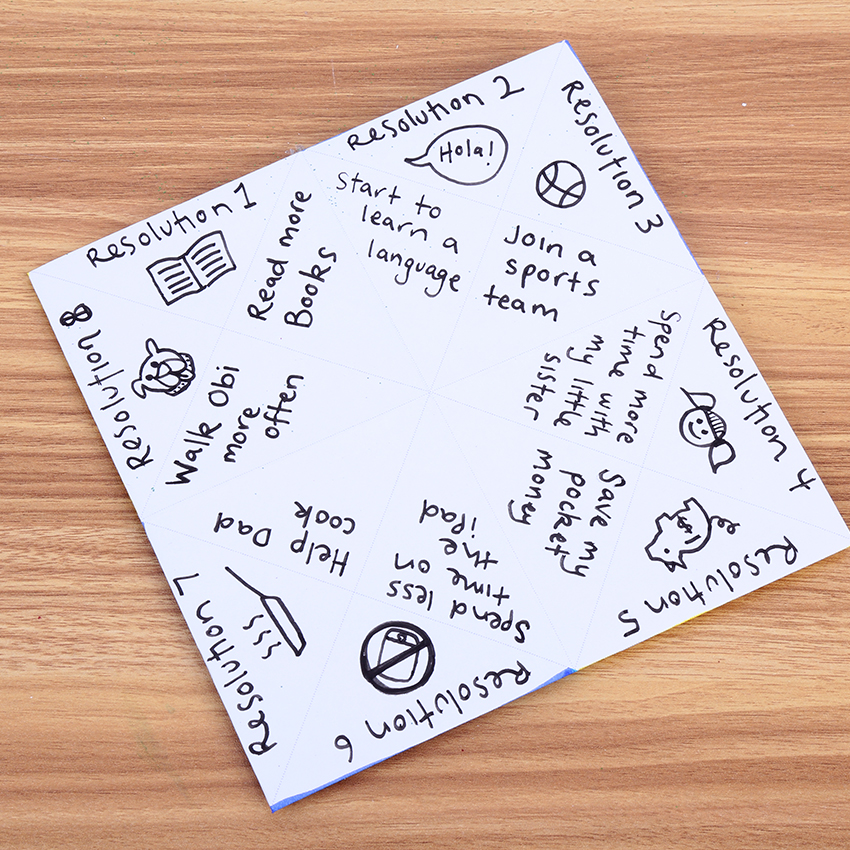 Resolution 1
Read more
Books
Resolution 2
Hola!
Start to
learn a
language
Resolution 3
Join a
sports
team
Resolution 4
Spend more
time with
my little
sister
Resolution 5
Save my
pocket
money
Resolution 6
Spend less
time on
the
iPad
Resolution 7
Help Dad
cook
Resolution 8
Walk Obi
more
often